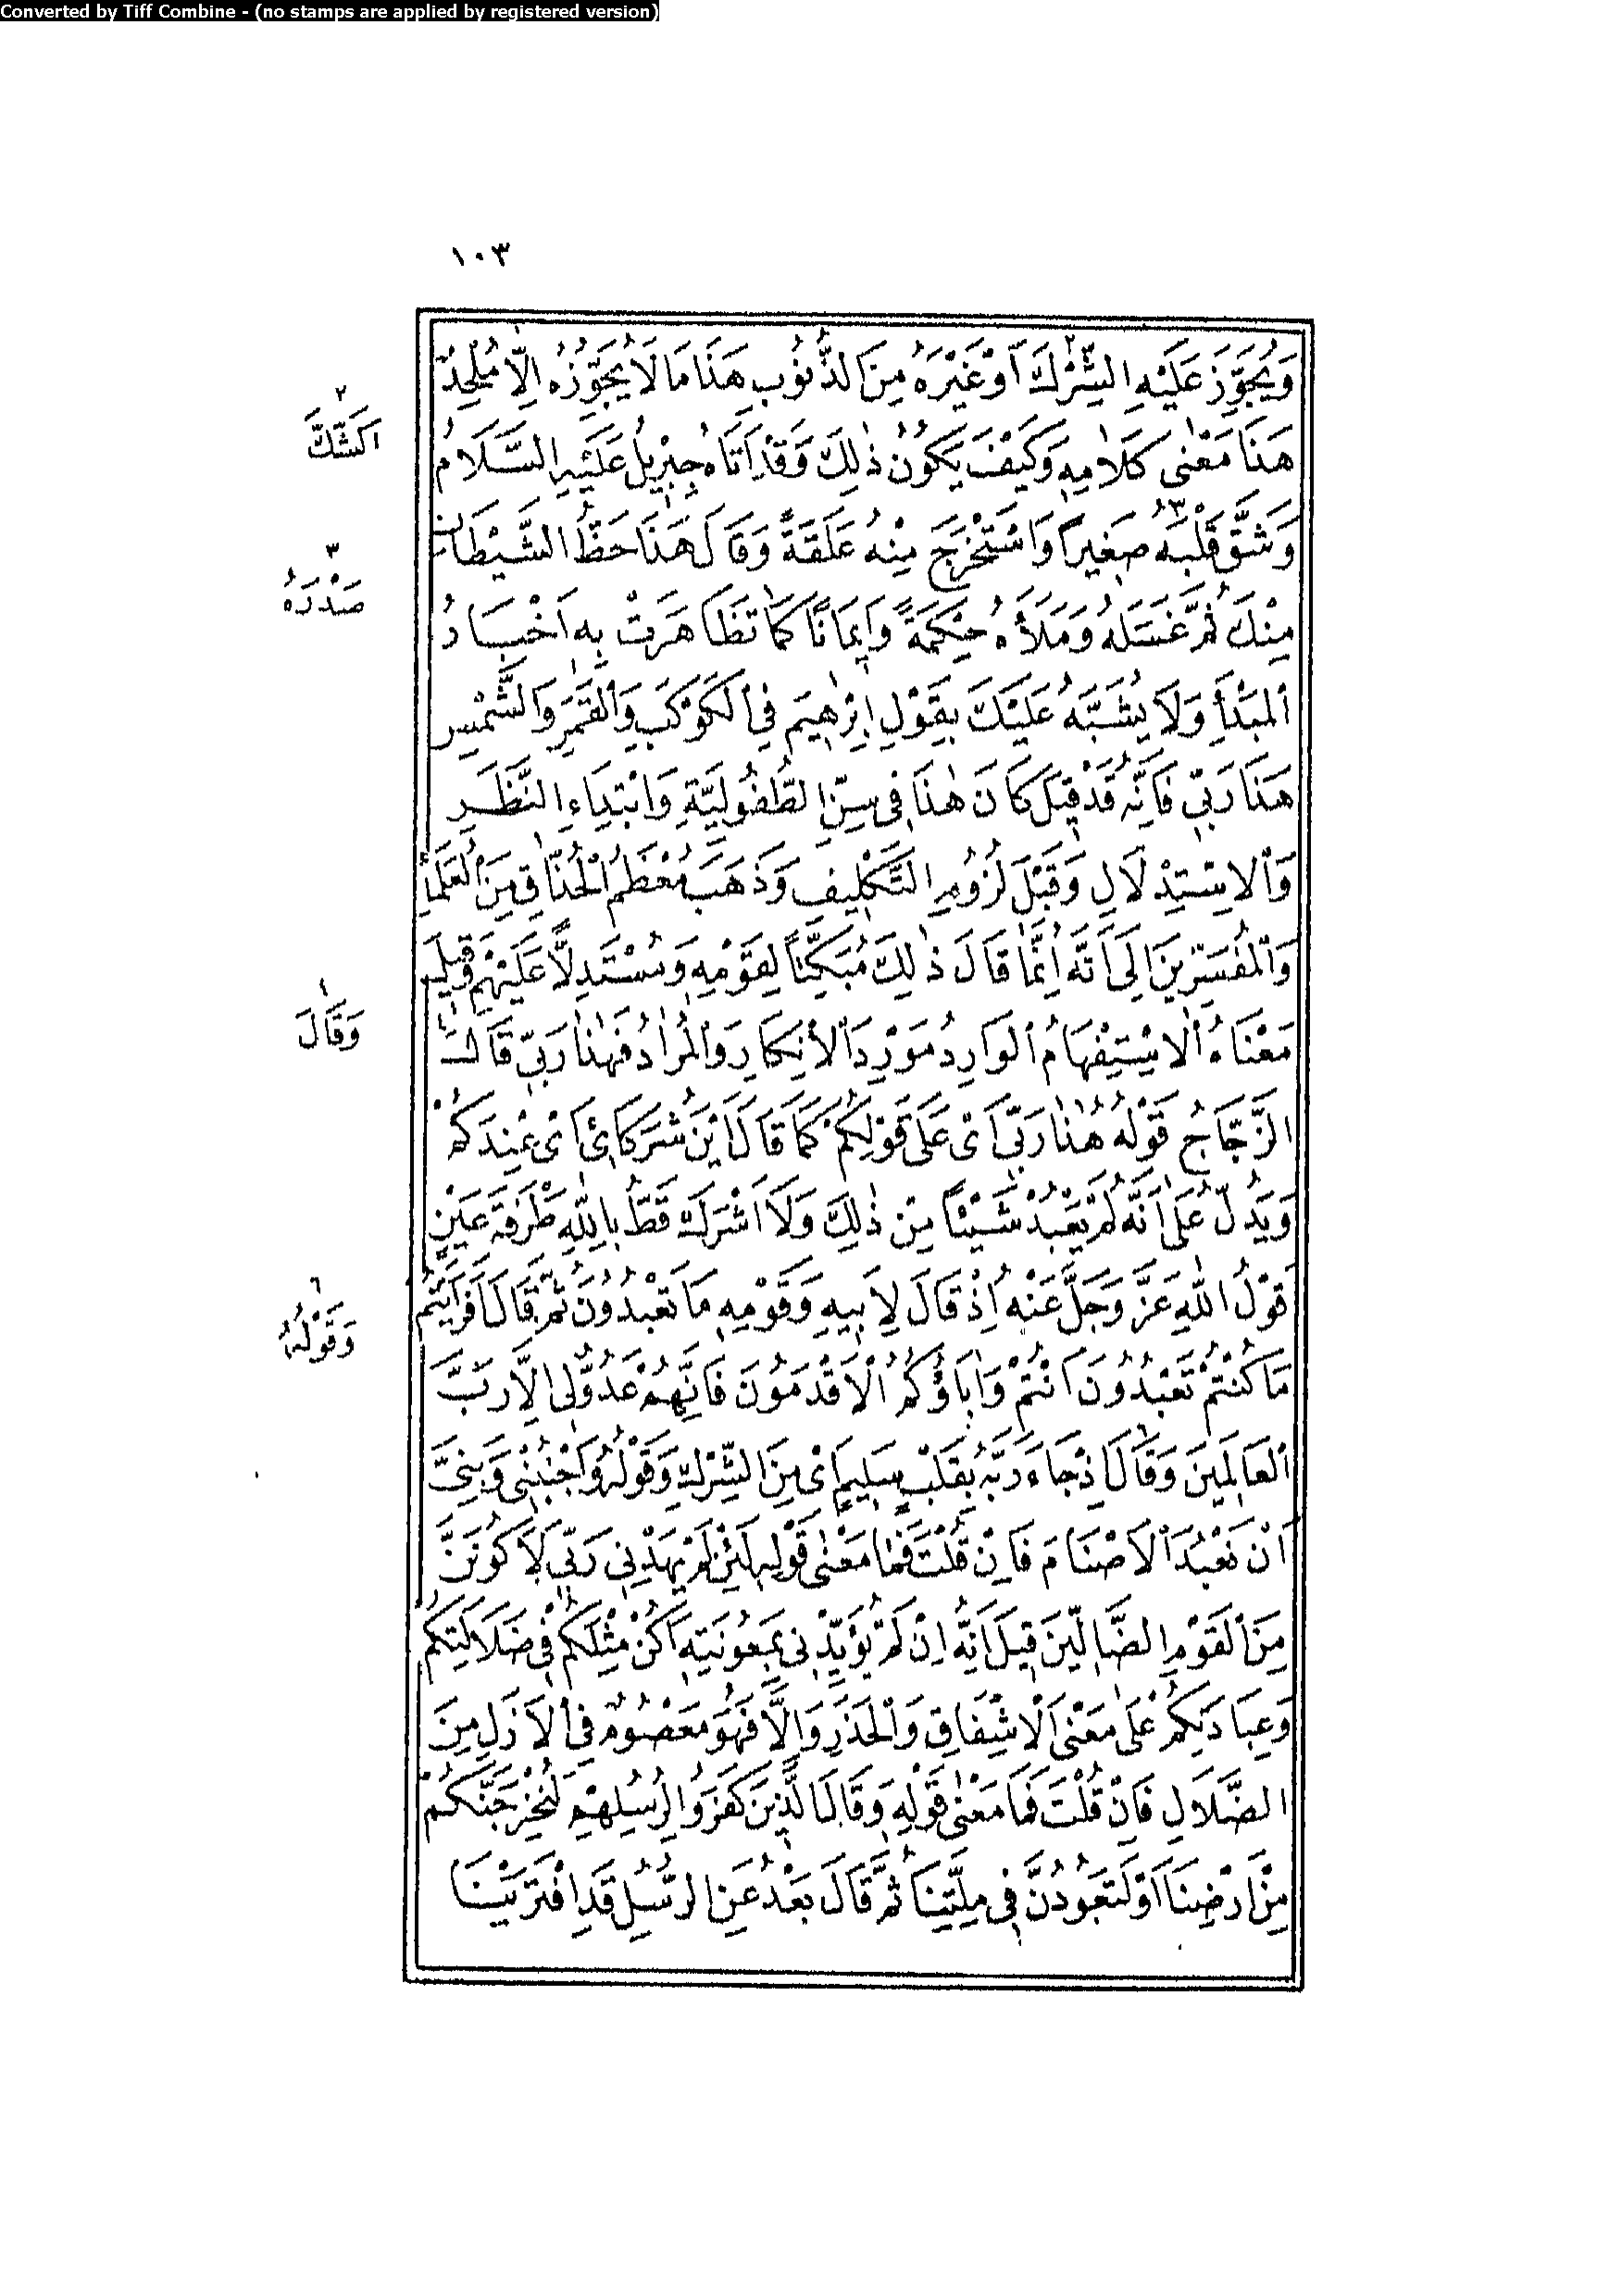 Converted by Tiff Combine - (no stamps are applied by registered version)
١٠٣
وَيُجَوِّزَ عَلَيْهِ الشِّرْكَ٢ أَوْ غَيْرَهُ مِنَ الذُّنُوبِ هَذَا مَا لَا يُجَوِّزُهُ اِلَّا مُلْحِدٌ
هَذَا مَعْنٰى كَلَامِهِ وَكَيْفَ يَكُونُ ذٰلِكَ وَقَدْ اَتَاهُ جِبْرِيلُ عَلَيْهِ السَّلَامُ
وَشَقَّ قَلْبَهُ٣ صَغِيرًا وَاسْتَخْرَجَ مِنْهُ عَلَقَةً وَقَالَ هَذَا حَظُّ الشَّيْطَانِ
مِنْكَ ثُمَّ غَسَلَهُ وَمَلَأَهُ حِكْمَةً وَاِيمَانًا كَمَا تَظَاهَرَتْ بِهِ اَخْبَارُ
الْمَبْدَأِ وَلَا يُشَبَّهُ عَلَيْكَ بِقَوْلِ اِبْرٰهِيمَ فِي الْكَوْكَبِ وَالْقَمَرِ وَالشَّمْسِ
هَذَا رَبِّي فَاِنَّهُ قَدْ قِيلَ كَانَ هٰذَا فِى سِنِّ الطُّفُولِيَّةِ وَابْتِدَاءِ النَّظَرِ
وَالْاِسْتِدْلَالِ وَقَبْلَ لُزُومِ التَّكْلِيفِ وَذَهَبَ مُعْظَمُ الْحُذَّاقِ مِنَ الْعُلَمَاءِ
وَالْمُفَسِّرِينَ اِلَى اَنَّهُ اِنَّمَا قَالَ ذٰلِكَ مُبَكِّتًا لِقَوْمِهِ وَمُسْتَدِلًّا عَلَيْهِمْ وَقِيلَ
مَعْنَاهُ الْاِسْتِفْهَامُ الْوَارِدُ مَوْرِدَ الْاِنْكَارِ وَالْمُرَادُ فَهٰذَا رَبِّي قَالَ١
الزَّجَّاجُ قَوْلُهُ هٰذَا رَبِّي اَىْ عَلَى قَوْلِكُمْ كَمَا قَالَ اَيْنَ شُرَكَائِي اَىْ عِنْدَكُمْ
وَيَدُلُّ عَلَى اَنَّهُ لَمْ يَعْبُدْ شَيْئًا مِنْ ذٰلِكَ وَلَا اَشْرَكَ قَطُّ بِاللّٰهِ طَرْفَةَ عَيْنٍ
قَوْلُ اللّٰهِ عَزَّ وَجَلَّ عَنْهُ اِذْ قَالَ لِاَبِيهِ وَقَوْمِهِ مَا تَعْبُدُونَ ثُمَّ قَالَ اَفَرَاَيْتُمْ
مَا كُنْتُمْ تَعْبُدُونَ اَنْتُمْ وَاٰبَاؤُكُمُ الْاَقْدَمُونَ فَاِنَّهُمْ عَدُوٌّ لِى اِلَّا رَبَّ
الْعَالَمِينَ وَقَالَ اِذْ جَاءَ رَبَّهُ بِقَلْبٍ سَلِيمٍ اَىْ مِنَ الشِّرْكِ وَقَوْلُهُ وَاجْنُبْنِى وَبَنِىَّ
اَنْ نَعْبُدَ الْاَصْنَامَ فَاِنْ قُلْتَ فَمَا مَعْنٰى قَوْلِهِ لَئِنْ لَمْ يَهْدِنِى رَبِّى لَاَكُونَنَّ
مِنَ الْقَوْمِ الضَّالِّينَ قِيلَ اِنَّهُ اِنْ لَمْ يُؤَيِّدْنِى بِمَعُونَتِهِ اَكُنْ مِثْلَكُمْ فِى ضَلَالَتِكُمْ
وَعِبَادَتِكُمْ عَلَى مَعْنَى الْاِشْفَاقِ وَالْحَذَرِ وَاِلَّا فَهُوَ مَعْصُومٌ فِى الْاَزَلِ مِنَ
الضَّلَالِ فَاِنْ قُلْتَ فَمَا مَعْنٰى قَوْلِهِ وَقَالَ الَّذِينَ كَفَرُوا لِرُسُلِهِمْ لَنُخْرِجَنَّكُمْ
مِنْ اَرْضِنَا اَوْ لَتَعُودُنَّ فِى مِلَّتِنَا ثُمَّ قَالَ بَعْدُ عَنِ الرُّسُلِ قَدِ افْتَرَيْنَا
٢
اَلشَّكَّ
٣
صَدْرَهُ
١
وَقَالَ
٦
وَقَوْلُهُ